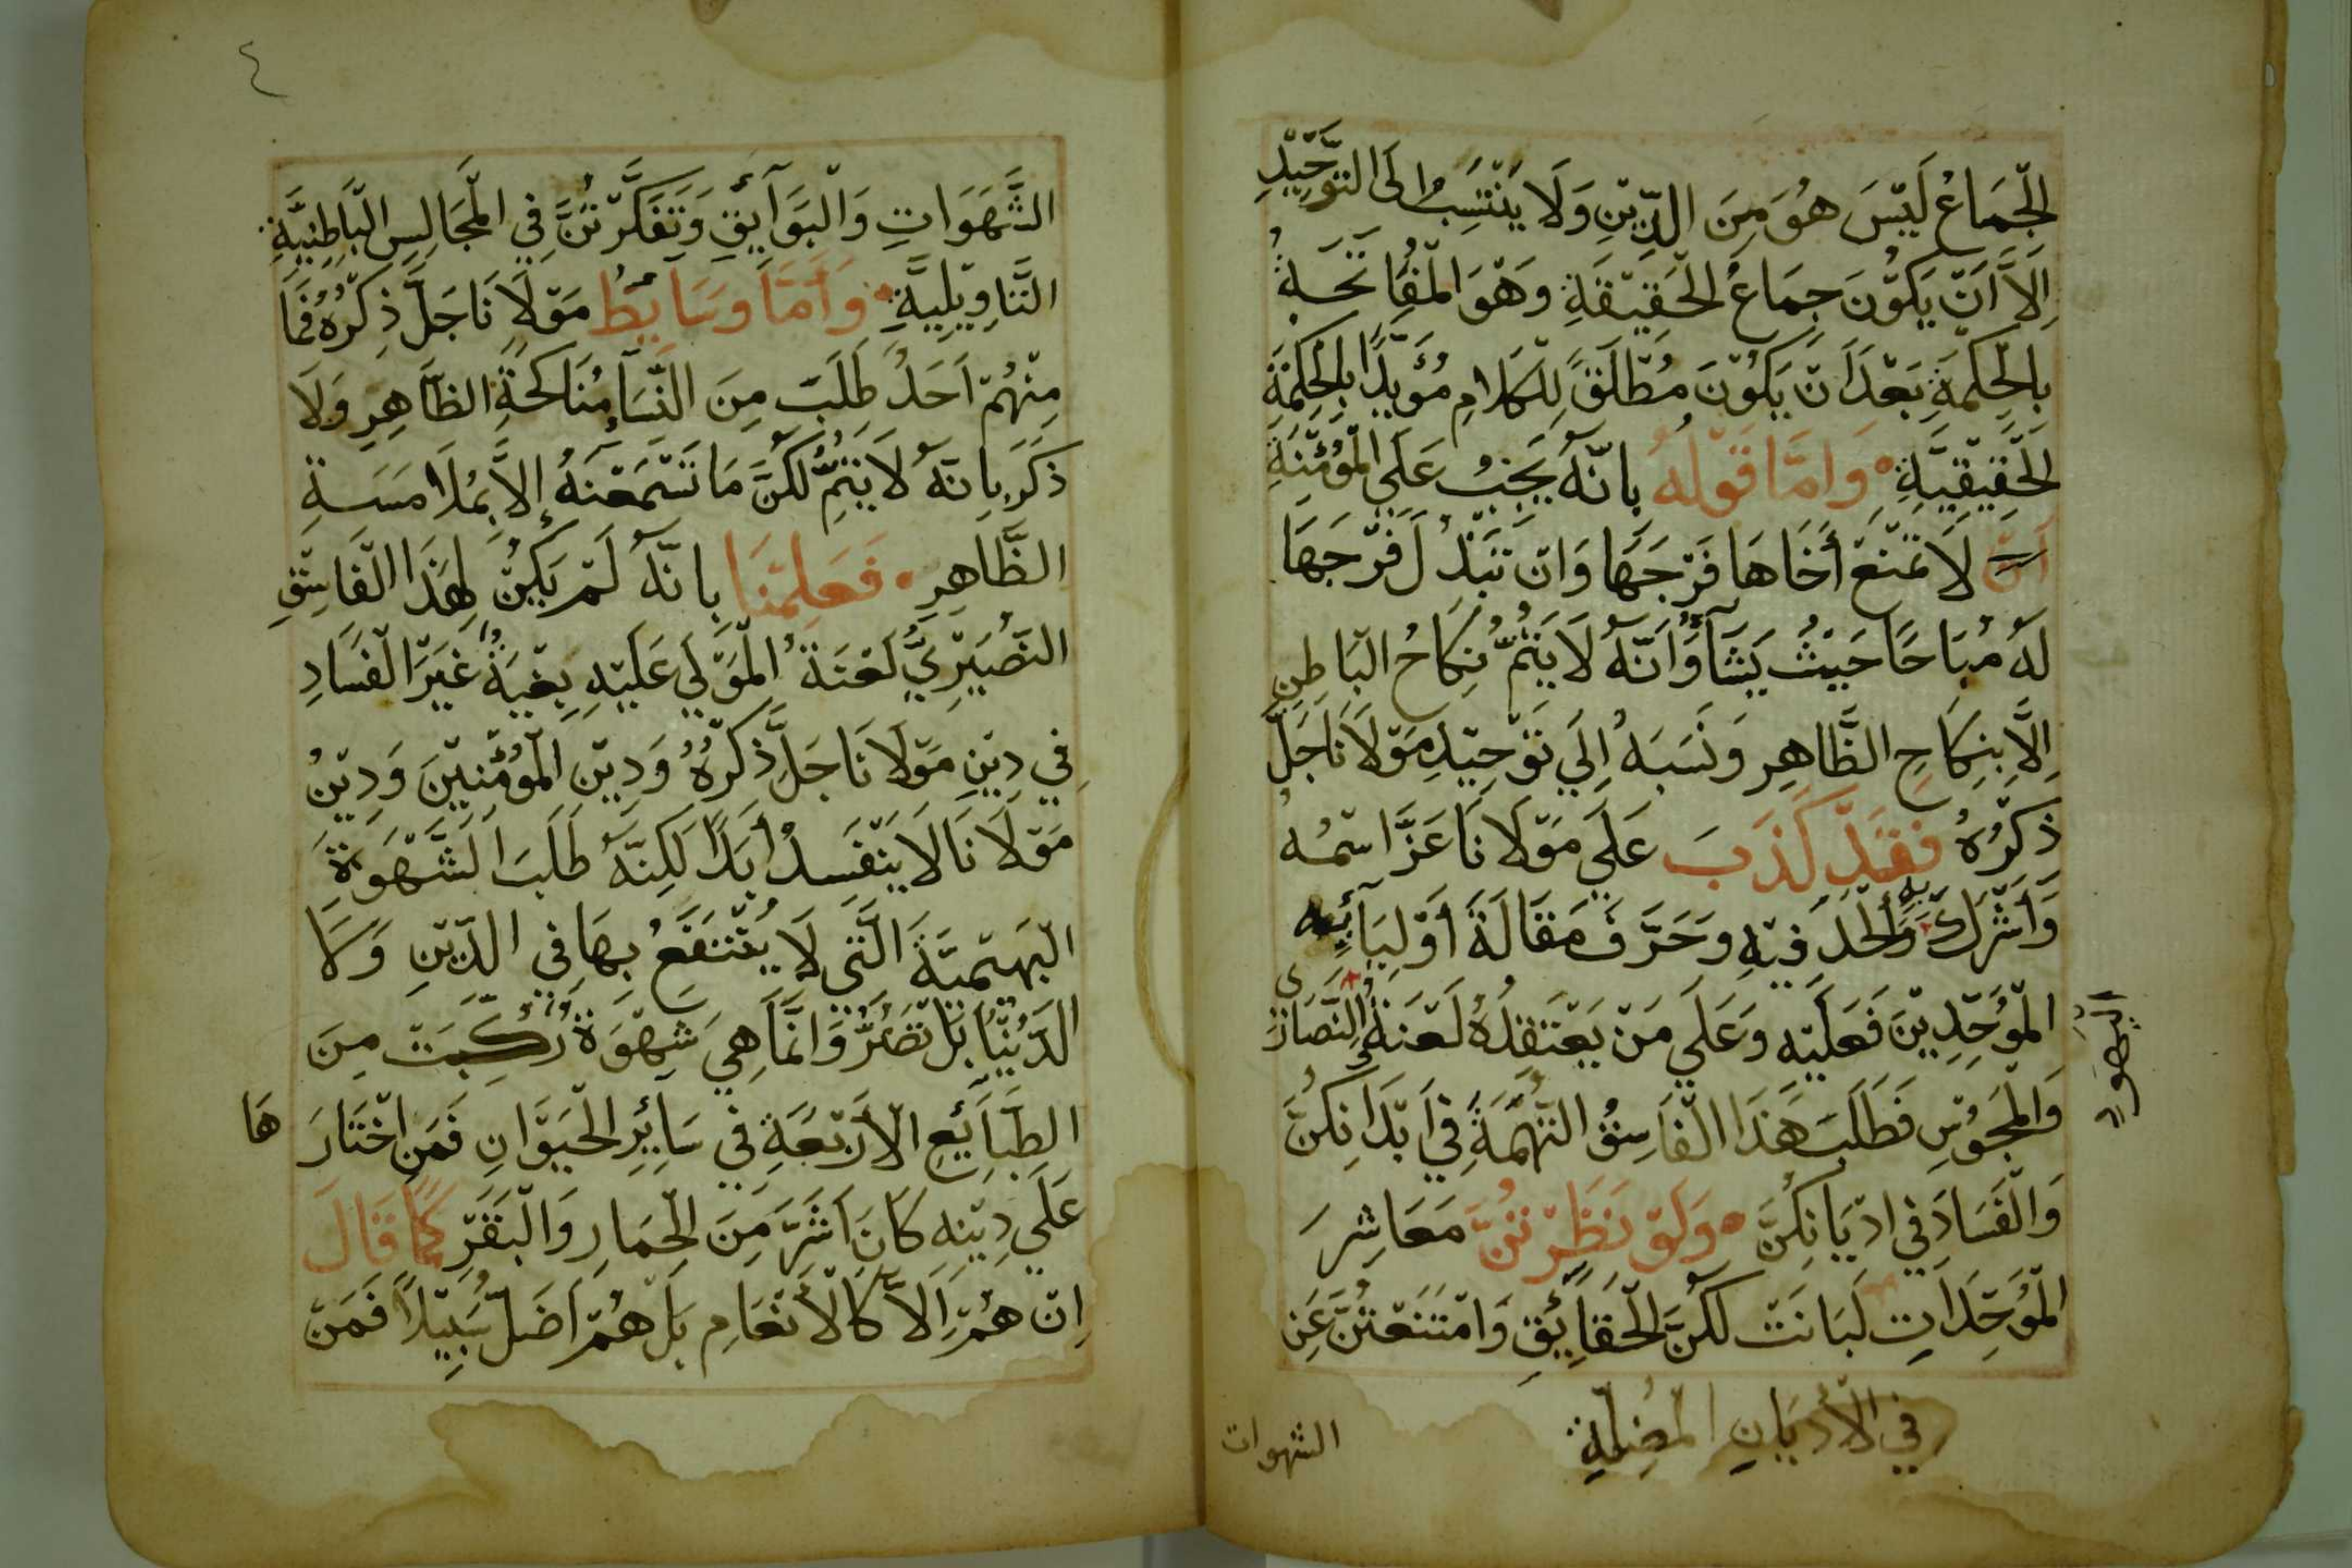 الْجِمَاعُ لَيْسَ هُوَ مِنَ الدِّيْنِ وَلَا يَنْتَسِبُ اِلَى التَّوْحِيْدِ
اِلَّا اَنْ يَكُوْنَ جِمَاعُ الْحَقِيْقَةِ وَهْوَ الْمُفَاتَحَةُ
بِالْحِكْمَةِ بَعْدَ اَنْ يَكُوْنَ مُطْلَقً لِلْكَلَامِ مُؤَيَّدًا بِالْحِكْمَةِ
الْحَقِيْقِيَّةِ وَامَّا قَوْلُهُ بِانَّهُ يَجِبُ عَلَي الْمُؤْمِنَةِ
اَنْ لَا تَمْنَعَ أَخَاهَا فَرْجَهَا وَانْ تَبْذُلَ فَرْجَهَا
لَهُ مُبَاحًا حَيْثُ يَشَآءُ وَاَنَّهُ لَا يَتِمُّ نِكَاحُ الْبَاطِنِ
اِلَّا بِنِكَاحِ الظَّاهِرِ وَنَسَبَهُ اِلَي تَوْحِيْدِ مَوْلَانَا جَلَّ
ذِكْرُهُ فَقَدْ كَذَبَ عَلَي مَوْلَانَا عَزَّ اسْمُهُ
وَأَشْرَكَ بِهِ وَأَلْحَدَ فِيْهِ وَحَرَّفَ مَقَالَةَ أَوْلِيَآئِهِ
الْمُوَحِّدِيْنَ فَعَلَيْهِ وَعَلَي مَنْ يَعْتَقِدُهُ لَعْنَةُ النَّصَارَى
وَالْمَجُوْسِ فَطَلَبَ هَذَا الْفَاسِقُ التُّهْمَةَ فِي اَبْدَانِكُنَّ
وَالْفَسَادَ فِي ادْيَانِكُنَّ وَلَوْ نَظَرْتُنَّ مَعَاشِرَ
الْمُوَحِّدَاتِ لَبَانَتْ لَكُنَّ الْحَقَائِقِ وَامْتَنَعْتُنَّ عَنِ
فِي الْأَدْيَانِ الْمُضِلَّةِ
الشهوات
٤
الشَّهَوَاتِ وَالْبَوَآئِقِ وَتَفَكَّرْتُنَّ فِي الْمَجَالِسِ الْبَاطِنِيَّةِ
التَّاوِيْلِيَّةِ وَأَمَّا وَسَايِطُ مَوْلَانَا جَلَّ ذِكْرُهُ فَمَا
مِنْهُمْ اَحَدٌ طَلَبَ مِنَ النِّسَآءِ مُنَاكَحَةَ الظَّاهِرِ وَلَا
ذَكَرَ بِانَّهُ لَا يَتِمُّ لَكُنَّ مَا تَسْمَعْنَهُ إِلَّا بِمُلَامَسَةِ
الظَّاهِرِ فَعَلِمْنَا بِانَّهُ لَمْ يَكُنْ لِهَذَا الْفَاسِقِ
النُّصَيْرِيِّ لَعْنَةُ الْمَوْلَي عَلَيْهِ بِغْيَةٌ غَيْرَ الْفَسَادِ
فِي دِيْنِ مَوْلَانَا جَلَّ ذِكْرُهُ وَدِيْنِ الْمُؤْمِنِيْنَ وَدِيْنُ
مَوْلَانَا لَا يَنْفَسِدُ أَبَدًا لَكِنَّهُ طَلَبَ الشَّهْوَةَ
الْبَهِيْمِيَّةَ الَّتِي لَا يُنْتَفَعُ بِهَا فِي الدِّيْنِ وَلَا
الدُّنْيَا بَلْ تَضُرُّ وَانَّمَا هِيَ شَهْوَةٌ رُكِّبَتْ مِنَ
الطَّبَآئِعِ الْأَرْبَعَةِ فِي سَآئِرِ الْحَيَوَانِ فَمَنِ اخْتَارَ هَا
عَلَي دِيْنِهِ كَانَ اَشَرَّ مِنَ الْحِمَارِ وَالْبَقَرِ كَمَا قَالَ
اِنْ هُمْ اِلَّا كَالْأَنْعَامِ بَلْ هُمْ اَضَلُّ سَبِيْلًا فَمَنْ